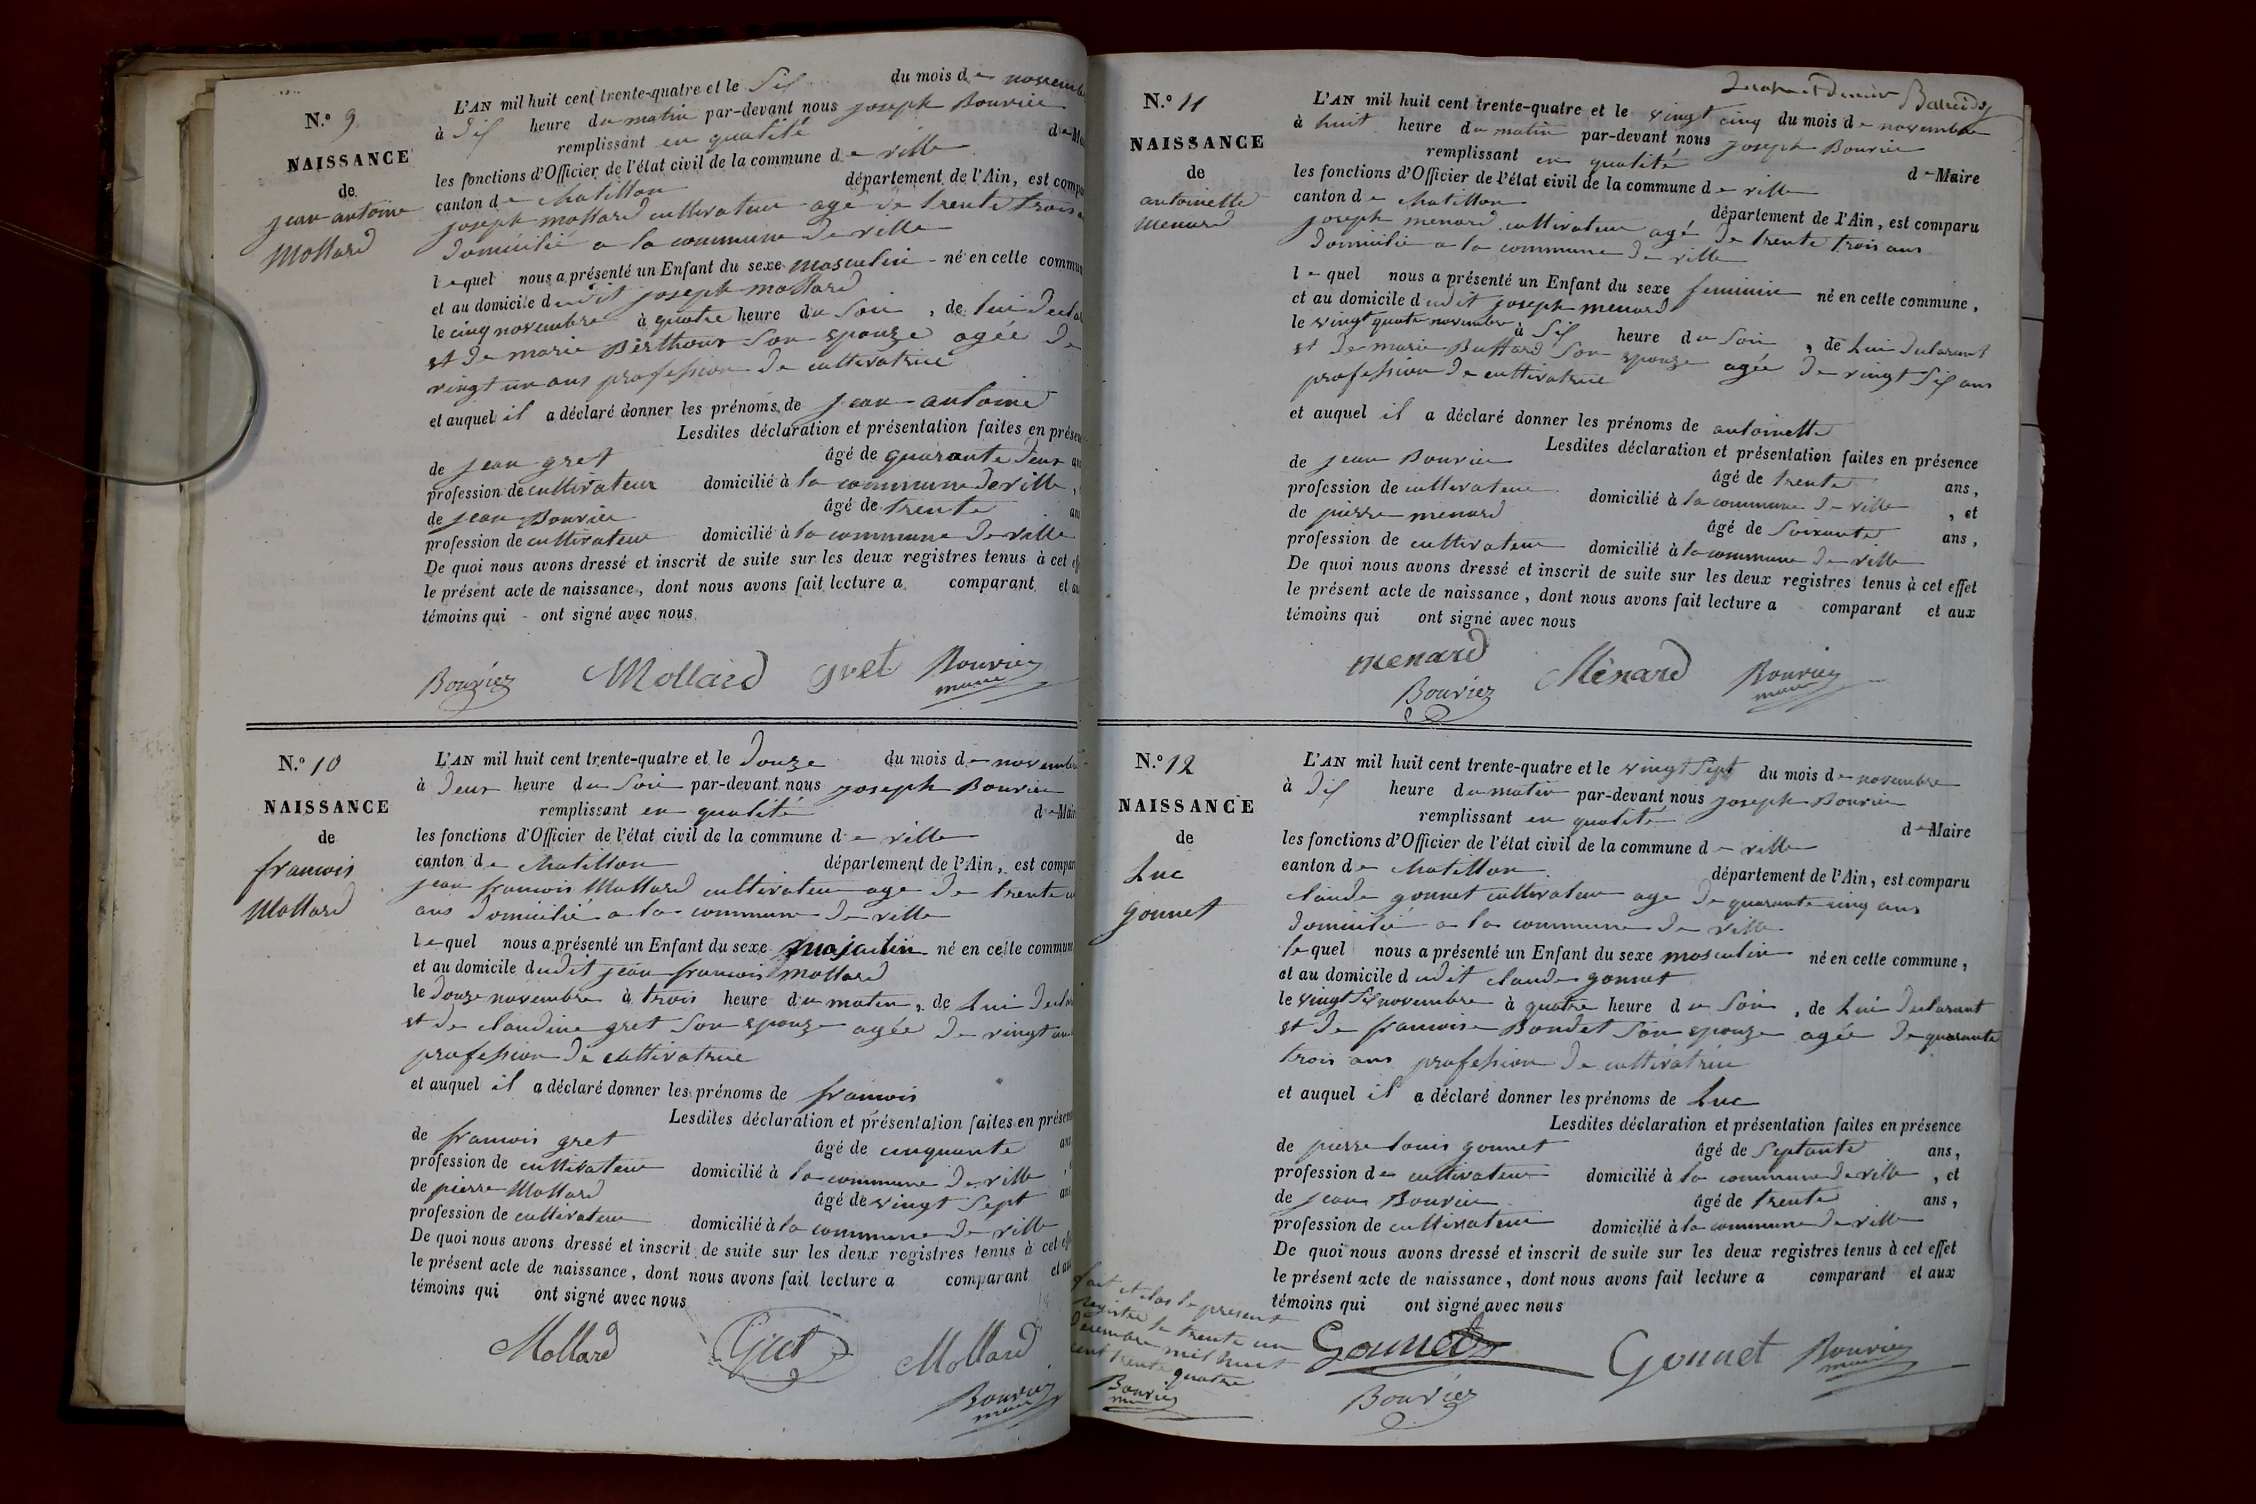 N.o 9
NAISSANCE
de
jean antoine
Mollard
L'AN mil huit cent trente-quatre et le Six du mois de novembre
à dix heure du matin par-devant nous joseph Bouvier
remplissant en qualité de Mai
les fonctions d'Officier de l'état civil de la commune de ville
canton de chatillon département de l'Ain, est compa
joseph mollard cultivateur age de trente trois
domicilié a la commune de ville
lequel nous a présenté un Enfant du sexe masculin né en cette commun
et au domicile dudit joseph mollard
le cinq novembre à quatre heure du Soir, de lui decla
et de marie Berthour Son epouze agée de
vingt un ans profession de cultivatrice
et auquel il a déclaré donner les prénoms de jean antoine
Lesdites déclaration et présentation faites en présen
de jean gret âgé de quarante deux an
profession de cultivateur domicilié à la commune de ville,
de jean Bouvier âgé de trente an
profession de cultivateur domicilié à la commune de ville
De quoi nous avons dressé et inscrit de suite sur les deux registres tenus à cet eff
le présent acte de naissance, dont nous avons fait lecture a comparant et au
témoins qui ont signé avec nous
Bouviez Mollard gret Bouvier
maire
N.o 10
NAISSANCE
de
francois
Mollard
L'AN mil huit cent trente-quatre et le douze du mois de novembre
à deux heure du Soir par-devant nous joseph Bouvier
remplissant en qualité de Mair
les fonctions d'Officier de l'état civil de la commune de ville
canton de chatillon département de l'Ain, est compar
jean francois Mollard cultivateur age de trente
ans domicilié a la commune de ville
lequel nous a présenté un Enfant du sexe masculin né en cette commune
et au domicile dudit jean francois mollard
le douze novembre à trois heure du matin, de Lui decla
et de claudine gret Son epouze agée de vingt
profession de cultivatrice
et auquel il a déclaré donner les prénoms de francois
Lesdites déclaration et présentation faites en présen
de francois gret âgé de cinquante ans
profession de cultivateur domicilié à la commune de ville
de pierre Mollard âgé de vingt Sept ans
profession de cultivateur domicilié à la commune de ville
De quoi nous avons dressé et inscrit de suite sur les deux registres tenus à cet eff
le présent acte de naissance, dont nous avons fait lecture a comparant et au
témoins qui ont signé avec nous
Mollard Gret Mollard
Bouvier
maire
dernier
N.o 11
NAISSANCE
de
antoinette
menard
L'AN mil huit cent trente-quatre et le vingt cinq du mois de novembre
à huit heure du matin par-devant nous joseph Bouvier
remplissant en qualité de Maire
les fonctions d'Officier de l'état civil de la commune de ville
canton de chatillon département de l'Ain, est comparu
joseph menard cultivateur agé de trente trois ans
domicilié a la commune de ville
lequel nous a présenté un Enfant du sexe feminin né en cette commune,
et au domicile dudit joseph menard
le vingt quatre novembre à Six heure du Soir, de Lui declarant
et de marie Buffard Son epouze agée de vingt Six ans
profession de cultivatrice
et auquel il a déclaré donner les prénoms de antoinette
Lesdites déclaration et présentation faites en présence
de jean Bouvier âgé de trente ans,
profession de cultivateur domicilié à la commune de ville, et
de pierre menard âgé de Soixante ans,
profession de cultivateur domicilié à la commune de ville
De quoi nous avons dressé et inscrit de suite sur les deux registres tenus à cet effet
le présent acte de naissance, dont nous avons fait lecture a comparant et aux
témoins qui ont signé avec nous
menard Ménard Bouvier
Bouviez maire
N.o 12
NAISSANCE
de
Luc
gonnet
L'AN mil huit cent trente-quatre et le vingt Sept du mois de novembre
à dix heure du matin par-devant nous joseph Bouvier
remplissant en qualité de Maire
les fonctions d'Officier de l'état civil de la commune de ville
canton de chatillon département de l'Ain, est comparu
claude gonnet cultivateur age de quarante cinq ans
domicilié a la commune de ville
lequel nous a présenté un Enfant du sexe masculin né en cette commune,
et au domicile dudit claude gonnet
le vingt Six novembre à quatre heure du Soir, de Lui declarant
et de francoise Bondet Son epouze agée de quarante
trois ans profession de cultivatrice
et auquel il a déclaré donner les prénoms de Luc
Lesdites déclaration et présentation faites en présence
de pierre louis gonnet âgé de Septante ans,
profession de cultivateur domicilié à la commune de ville, et
de jean Bouvier âgé de trente ans,
profession de cultivateur domicilié à la commune de ville
De quoi nous avons dressé et inscrit de suite sur les deux registres tenus à cet effet
le présent acte de naissance, dont nous avons fait lecture a comparant et aux
témoins qui ont signé avec nous
fait et clos le present
registre le trente un
decembre mil huit
cent trente quatre
Bouvier
maire
Gonnet Gonnet Bouvier
Bouviez maire